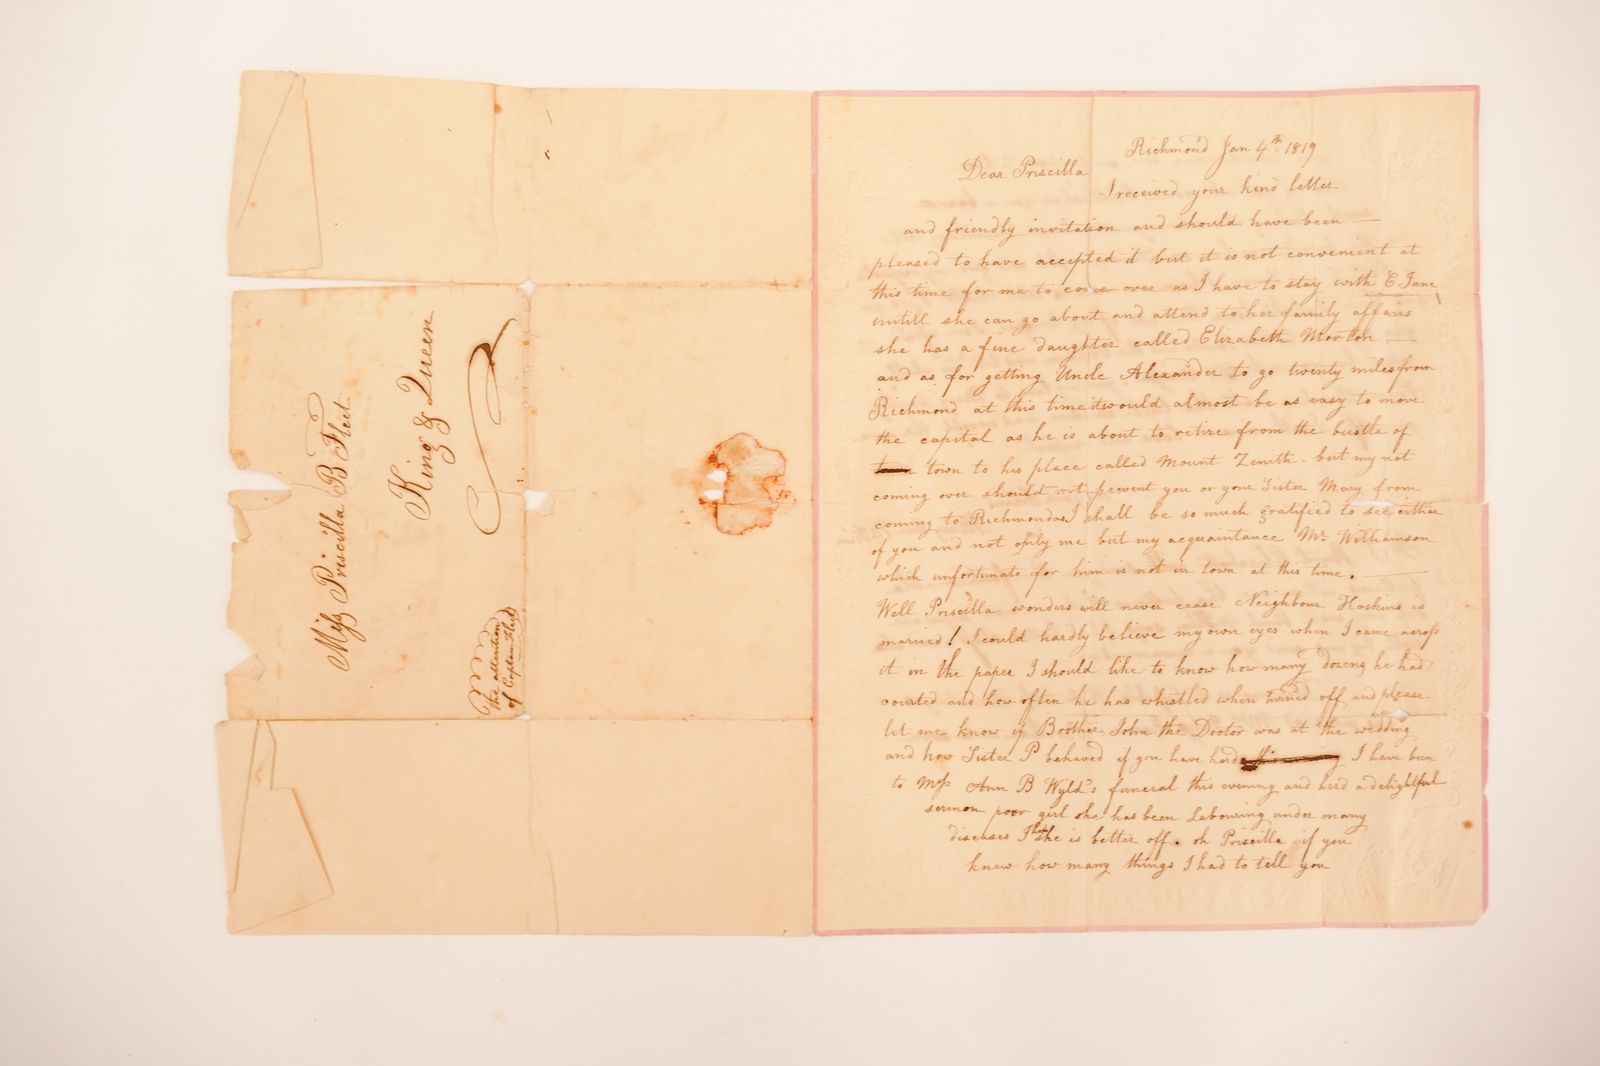 Miss Priscilla B Fleet
King & Queen
the attention
of Captain Fleet
Richmond Jan 4th. 1819
Dear Priscilla
I received your kind letter
and friendly invitation and should have been
pleased to have accepted it but it is not convenient at
this time for me to come over as I have to stay with E Jane
untill she can go about and attend to her family affairs
she has a fine daughter called Elizabeth Morton.
and as for getting Uncle Alexander to go twenty miles from
Richmond at this time it would almost be as easy to move
the capital as he is about to retire from the bustle of
town town to his place called Mount Zenith. but my not
coming over should not prevent you or your Sister Mary from
coming to Richmond as I shall be so much gratified to see either
of you and not only me but my acquaintance Mr. Williamson
which unfortunate for him is not in town at this time.
Well Priscilla wonders will never cease Neighbour Hoskins is
married! I could hardly believe my own eyes when I came across
it in the paper I should like to know how many dozens he had
courted and how often he has whistled when turned off and please
let me know if Brother John the Doctor was at the wedding
and how Sister P behaved if you have herd I have been
to Miss Ann B Wyld's funeral this evening and herd a delightful
sermon poor girl she has been Labouring under many
diseases I hope she is better off. oh Priscilla if you
knew how many things I had to tell you